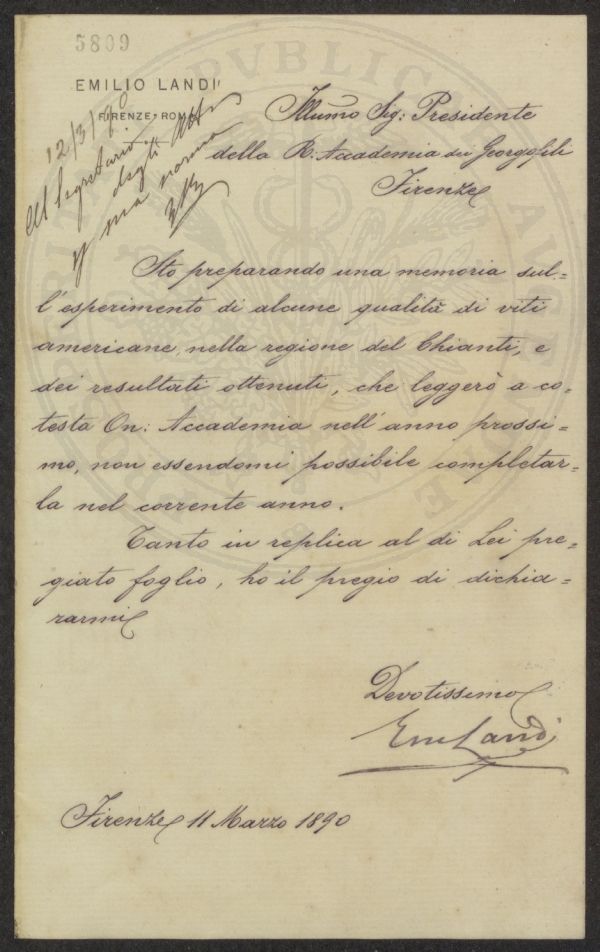 5809
EMILIO LANDI
FIRENZE-ROMA
12/3/90
Al Segretario
degli Atti
p sua norma
Illumo Sig: Presidente
della R. Accademia dei Georgofili
Firenze
Sto preparando una memoria sul=
l'esperimento di alcune qualità di viti
americane, nella regione del Chianti, e
dei resultati ottenuti, che leggerò a co=
testa On: Accademia nell'anno prossi=
mo, non essendomi possibile completar=
la nel corrente anno.
Tanto in replica al di Lei pre=
giato foglio, ho il pregio di dichia=
rarmi
Devotissimo
Em Landi
Firenze 11 Marzo 1890